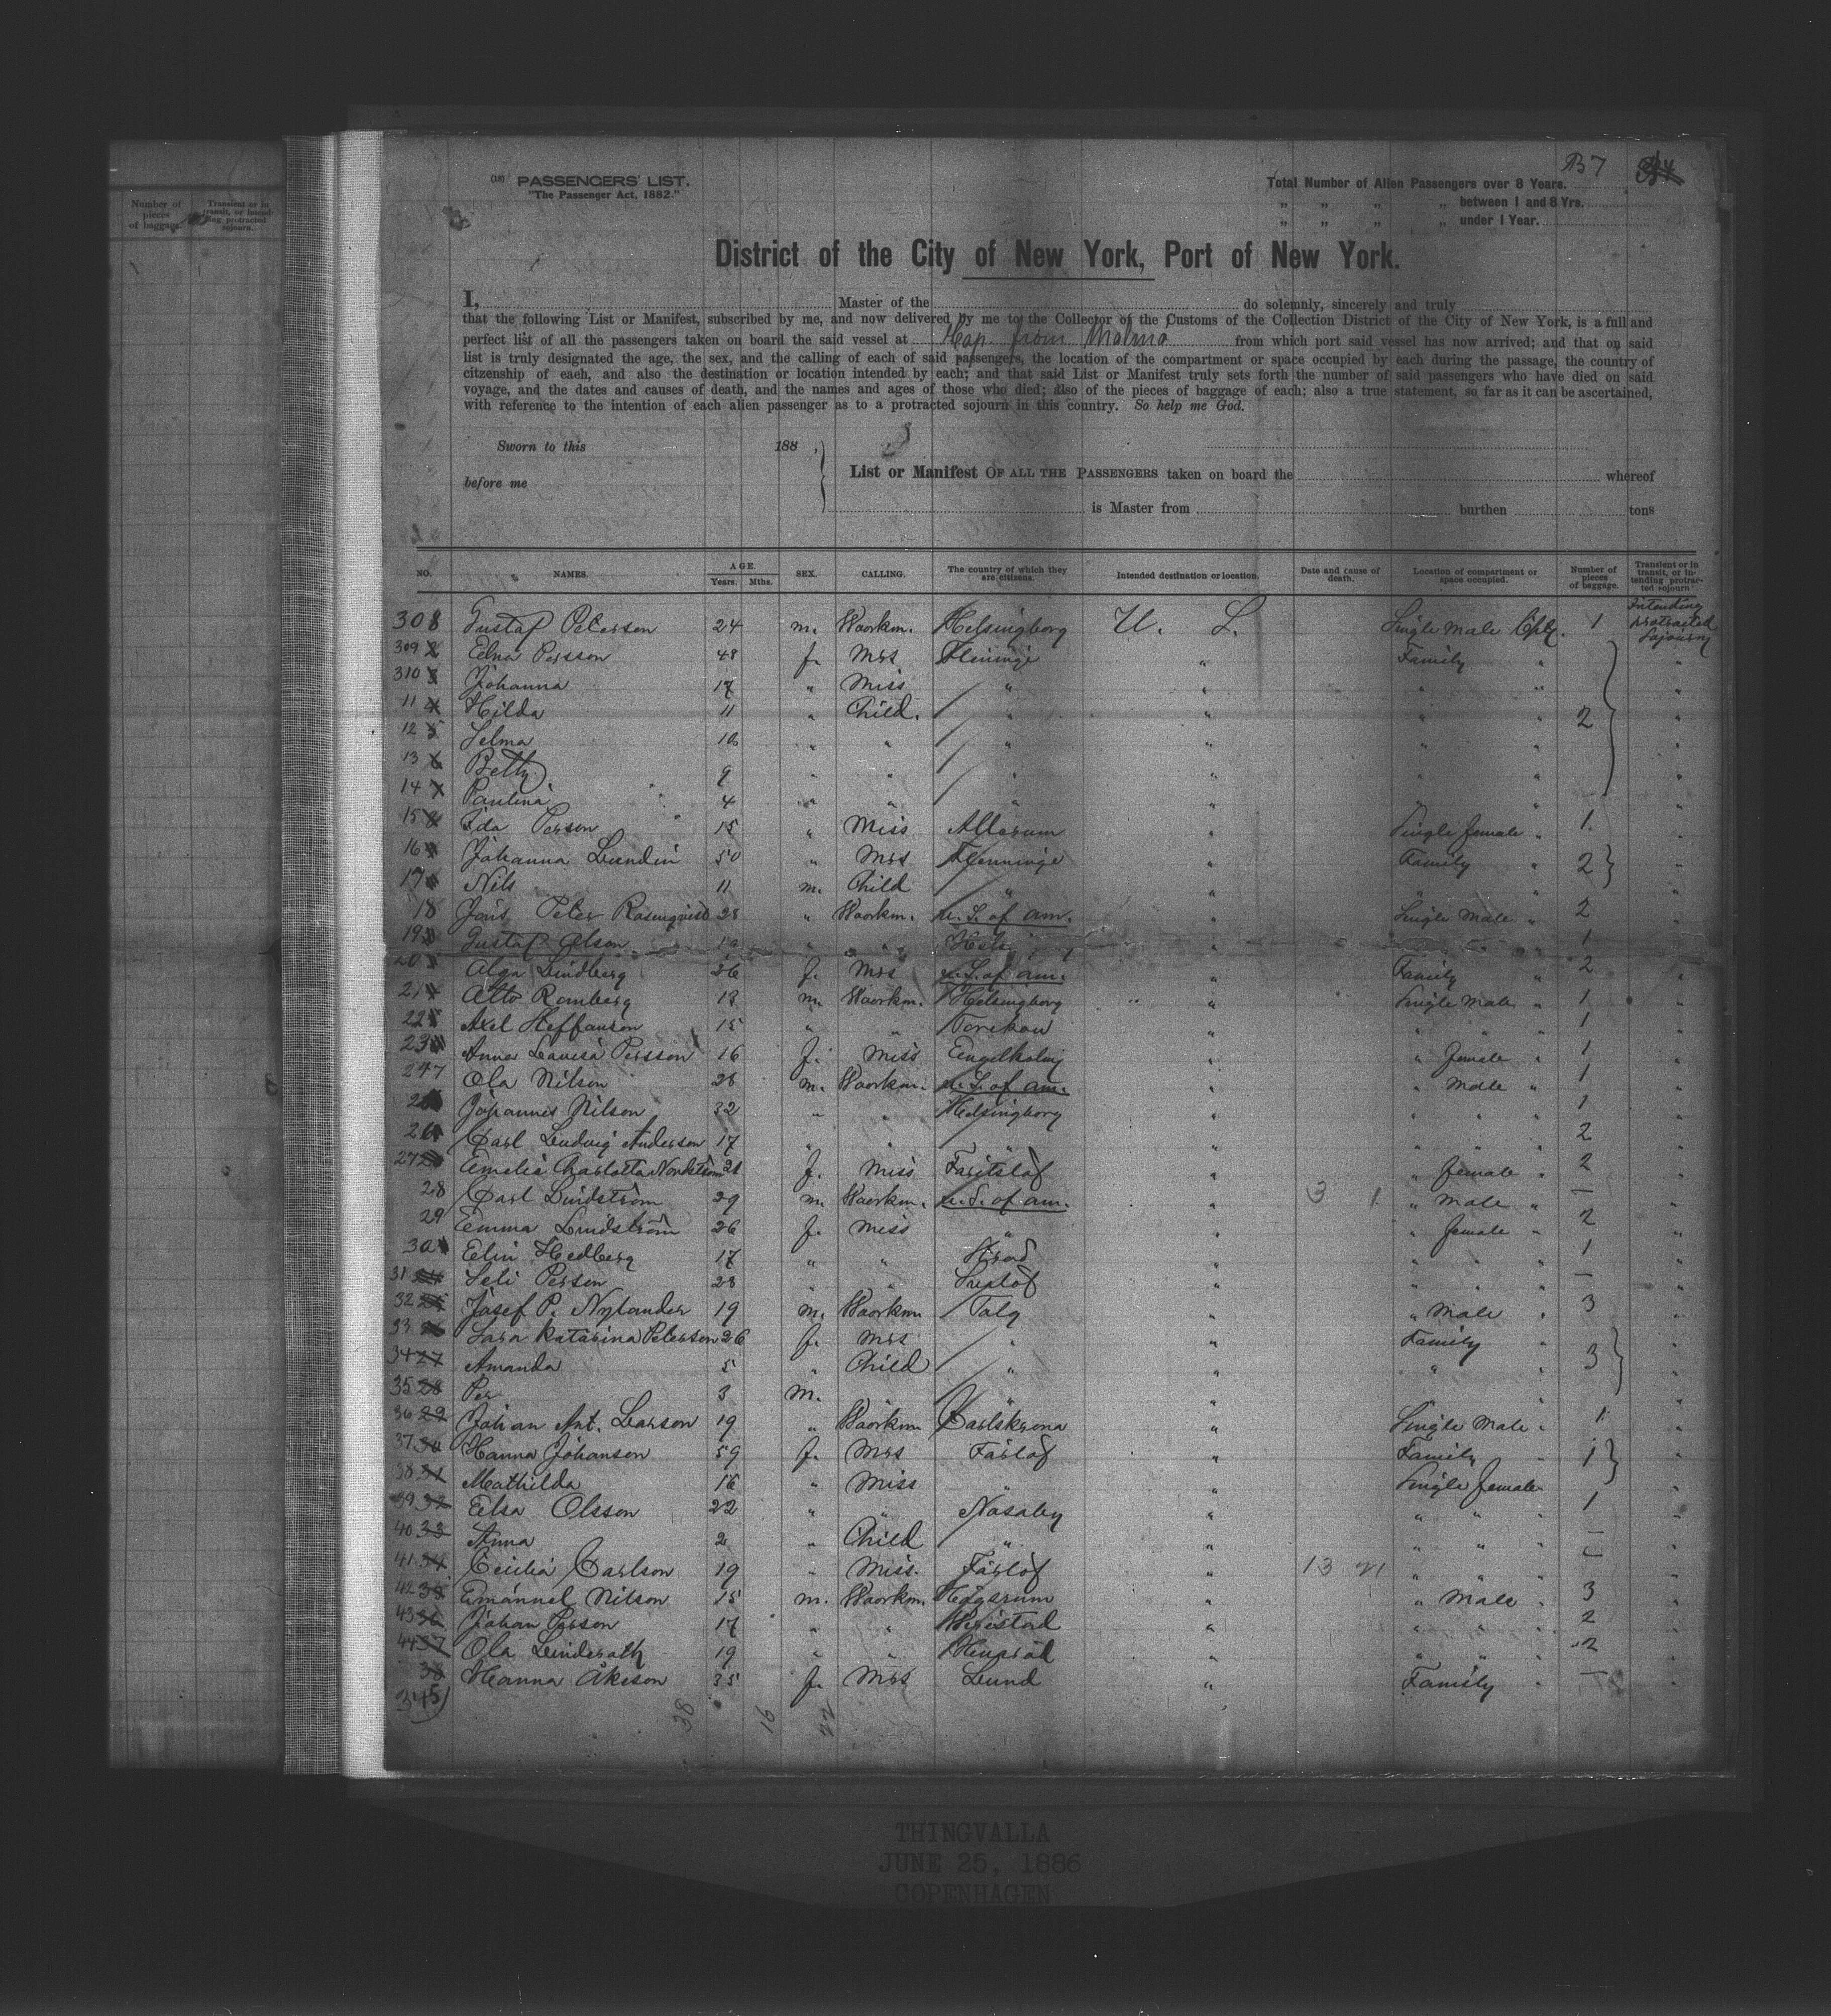 Number of pieces of baggage.
Transient or in transit, or intending protracted sojourn.
B7
(18) PASSENGERS' LIST.
"The Passenger Act, 1882."
Total Number of Alien Passengers over 8 Years.
" " " " between 1 and 8 Yrs.
" " " " under 1 Year.
District of the City of New York, Port of New York.
I, Master of the do solemnly, sincerely and truly
that the following List or Manifest, subscribed by me, and now delivered by me to the Collector of the Customs of the Collection District of the City of New York, is a full and
perfect list of all the passengers taken on board the said vessel at from Malmo from which port said vessel has now arrived; and that on said
list is truly designated the age, the sex, and the calling of each of said passengers, the location of the compartment or space occupied by each during the passage, the country of
citzenship of each, and also the destination or location intended by each; and that said List or Manifest truly sets forth the number of said passengers who have died on said
voyage, and the dates and causes of death, and the names and ages of those who died; also of the pieces of baggage of each; also a true statement, so far as it can be ascertained,
with reference to the intention of each alien passenger as to a protracted sojourn in this country. So help me God.
Sworn to this 188 ,
before me
List or Manifest OF ALL THE PASSENGERS taken on board the whereof
is Master from burthen tons
NO. NAMES. AGE. Years. Mths. SEX. CALLING. The country of which they are citizens. Intended destination or location. Date and cause of death. Location of compartment or space occupied. Number of pieces of baggage. Transient or in transit, or intending protracted sojourn
308 Gustaf Peterson 24 m. Woorkm. Helsingborg U. S. Single Male 1 Intending protracted Sojourn
309 Elna Persson 48 f. Mrs Fleninge " Family " "
310 Johanna 17 " Miss " " " " "
11 Hilda 11 " Child. " " " " 2 "
12 Selma 10 " " " " " " "
13 Betty 9 " " " " " " "
14 Paulina 4 " " " " " " "
15 Ida Person 15 " Miss Allerum " Single female " 1 "
16 Johanna Lundin 50 " Mrs Flenninge " Family " 2 "
17 Nils 11 m. Child " " " " "
18 Peter Rosenquist 28 " Woorkm. u. S. of am. " Single Male " 2 "
19 Gustaf Olson " " " 1
20 Alga Lindberg 26 f. Mrs u. S. of am. " Family " 2 "
21 Otto Romberg 18 m. Woorkm. Helsingborg " Single Male " 1 "
22 Axel Steffanson 15 " " Torekow " " " " 1 "
23 Anna Lauisa Persson 16 f. Miss Engelholm " " female " 1 "
24 Ola Nilson 26 m. Woorkm. u. S. of am. " " Male " 1 "
Johannes Nilson 32 " " Helsingborg " " " " 1 "
26 Carl Ludvig Anderson 17 " " " " " " " 2 "
27 Emelie Charlotta Nordstrom 21 f. Miss " " female " 2 "
28 Carl Lindström 29 m. Woorkm. u. S. of am. " 3 1 " Male " — "
29 Emma Lindström 26 f. Miss " " " female " 2 "
30 Elin Hedberg 17 " " " " " " 1 "
31 Person 28 " " " " " " — "
32 Josef P. Nylander 19 m. Woorkm. " " Male " 3 "
33 Sara Katarina Peterson 26 f. Mrs " " Family " "
34 Amanda 5 " Child " " " " 3 "
35 Per 3 m. " " "
36 Johan Ant. Larson 19 " Woorkm. Carlskrona " Single Male " 1 "
37 Hanna Johanson 59 f. Mrs Färlöf " Family " 1 "
38 Mathilda 16 " Miss " " Single female "
39 Elsa Olsson 22 " " Nosaby " " " " 1 "
40 Anna 2 " Child " " " " " — "
41 Cecilia Carlson 19 " Miss. Färlöf " 13 21 " " " — "
42 Emanuel Nilson 15 m. Woorkm. Högsrum " " Male " 3 "
43 Johan Person 17 " " " " " " 2 "
44 Ola Linderoth 19 " " " " " " 2 "
345 Hanna Åkeson 35 f. Mrs Lund " Family " — "
38 16 22
THINGVALLA
JUNE 25, 1886
COPENHAGEN